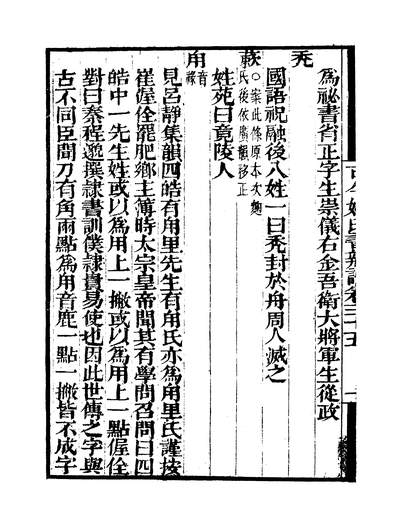 為祕書省正字生崇儀右金吾衛大將軍生從政
禿
國語祝融後八姓一曰禿封於舟周人滅之
蔌○案此條原本次麹
氏後依廣韻移正
姓苑曰竟陵人
甪音
祿
見呂靜集韻四皓有甪里先生有甪氏亦為甪里氏謹按
崔偓佺罷肥鄉主簿時太宗皇帝聞其有學問召問曰四
皓中一先生姓或以為用上一撇或以為用上一點偓佺
對曰秦程邈撰隸書訓僕隸貴易使也因此世傳之字與
古不同臣聞刀有角兩點為甪音鹿一點一撇皆不成字
古今姓氏書辯證卷三十五